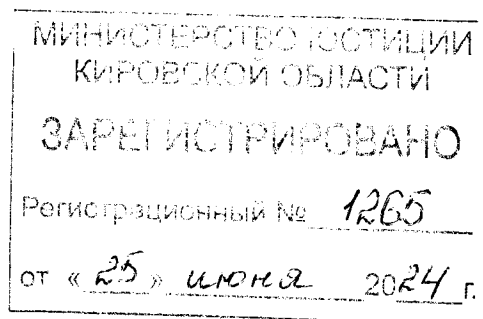 МИНИСТЕРСТВО ЮСТИЦИИ
КИРОВСКОЙ ОБЛАСТИ
ЗАРЕГИСТРИРОВАНО
Регистрационный № 1265
от «25» июня 2024 г.